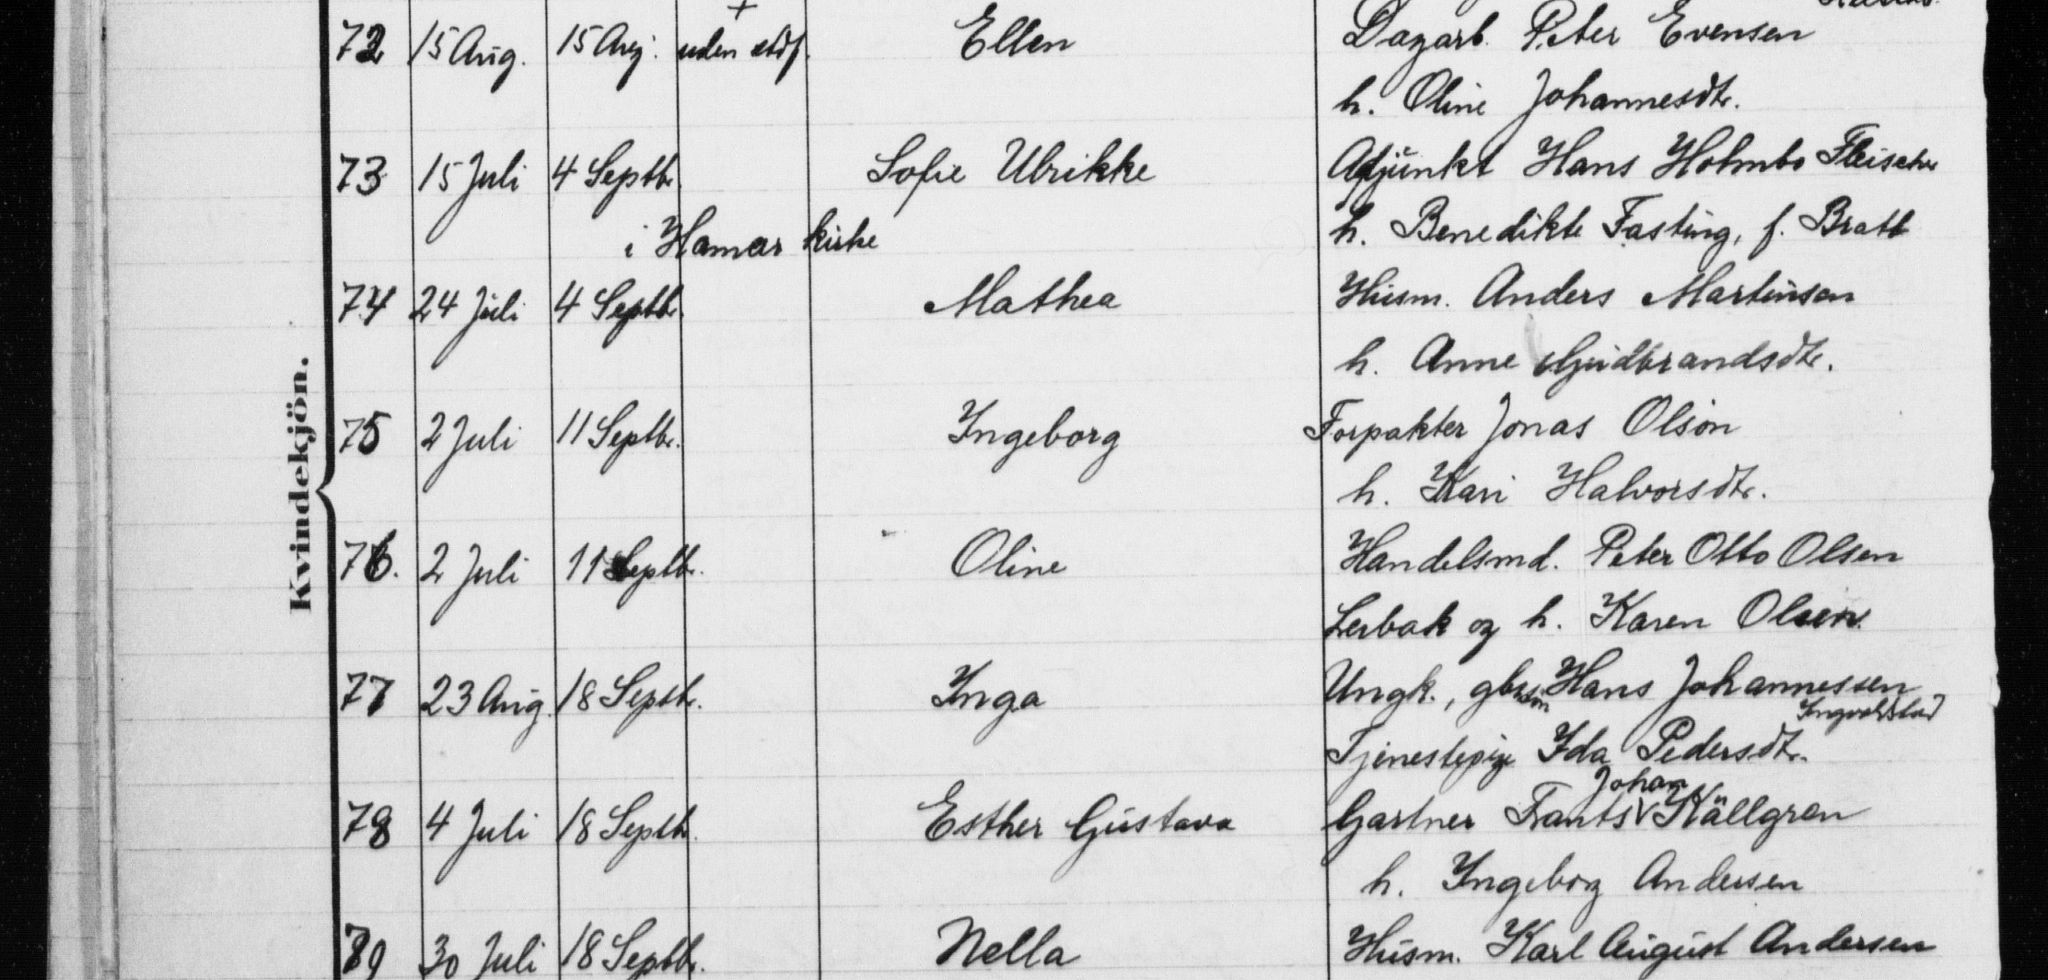 72 15 Aug. 15 Aug. uden stdf. Ellen Dagarb. Peter Evensen
h. Oline Johannesdtr.
73 15 Juli 4 Septbr Sofie Ulrikke Adjunkt Hans Holmbo Fleischer
i Hamar kirke h. Benedikte Fasting, f. Bratt
74 24 Juli 4 Septbr. Mathea Husm. Anders Martinsen
h. Anne Gudbrandsdtr.
Kvindekjön.
75 2 Juli 11 Septbr. Ingeborg Forpakter Jonas Olson
h. Kari Halvorsdtr.
76. 2 Juli 11 Septbr. Oline Handelsmd. Peter Otto Olsen
Lerbak og h. Karen Olsen.
77 23 Aug. 18 Septbr. Inga Ungk., gbrsøn Hans Johannessen
Ingvaldstad
Tjenestepige Ida Pedersdtr.
Johan
78 4 Juli 18 Septbr. Esther Gustava Gartner Frants Källgren
h. Ingeborg Andersen
79 30 Juli 18 Septbr. Nella Husm. Karl August Andersen